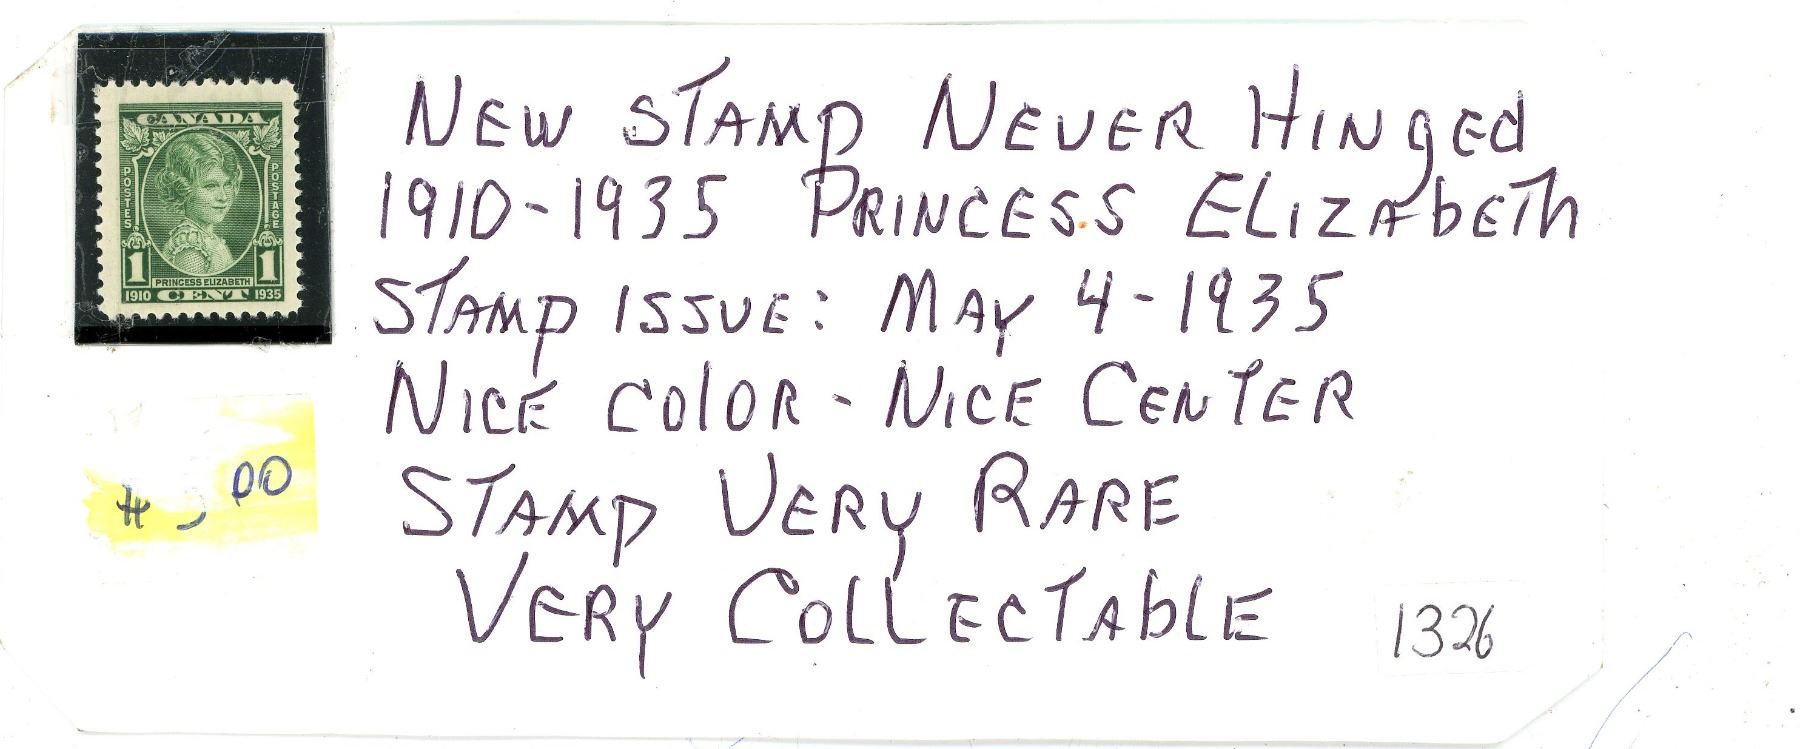 CANADA
POSTES
POSTAGE
1 1
PRINCESS ELIZABETH
1910 CENT 1935
NEW STAMP NEVER HINGED
1910-1935 PRINCESS ELIZABETH
STAMP ISSUE: MAY 4-1935
NICE COLOR - NICE CENTER
STAMP VERY RARE
VERY COLLECTABLE
00
1326